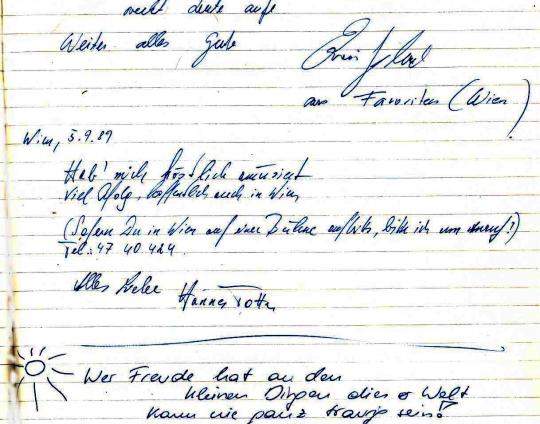 recht deute aufs
Weiter alles Gute
aus Favoriten (Wien)
Wien, 5.9.89
Hab' mich köstlich amüsiert
viel Erfolg, hoffentlich auch in Wien
(Sofern Du in Wien auf einer Bühne auftrittst, bitte ich um Anruf!)
Tel.: 47 40 424
Alles Liebe Hannes
Wer Freude hat an den
kleinen Dingen dieser Welt
kann nie ganz traurig sein!